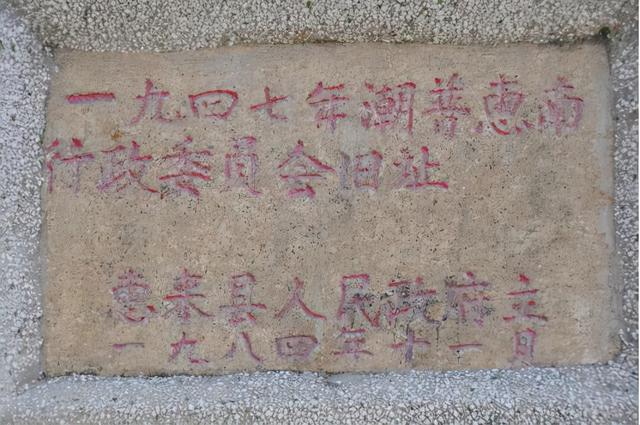 一九四七年潮普惠南
行政委員会旧址
惠来县人民政府立
一九八四年十一日